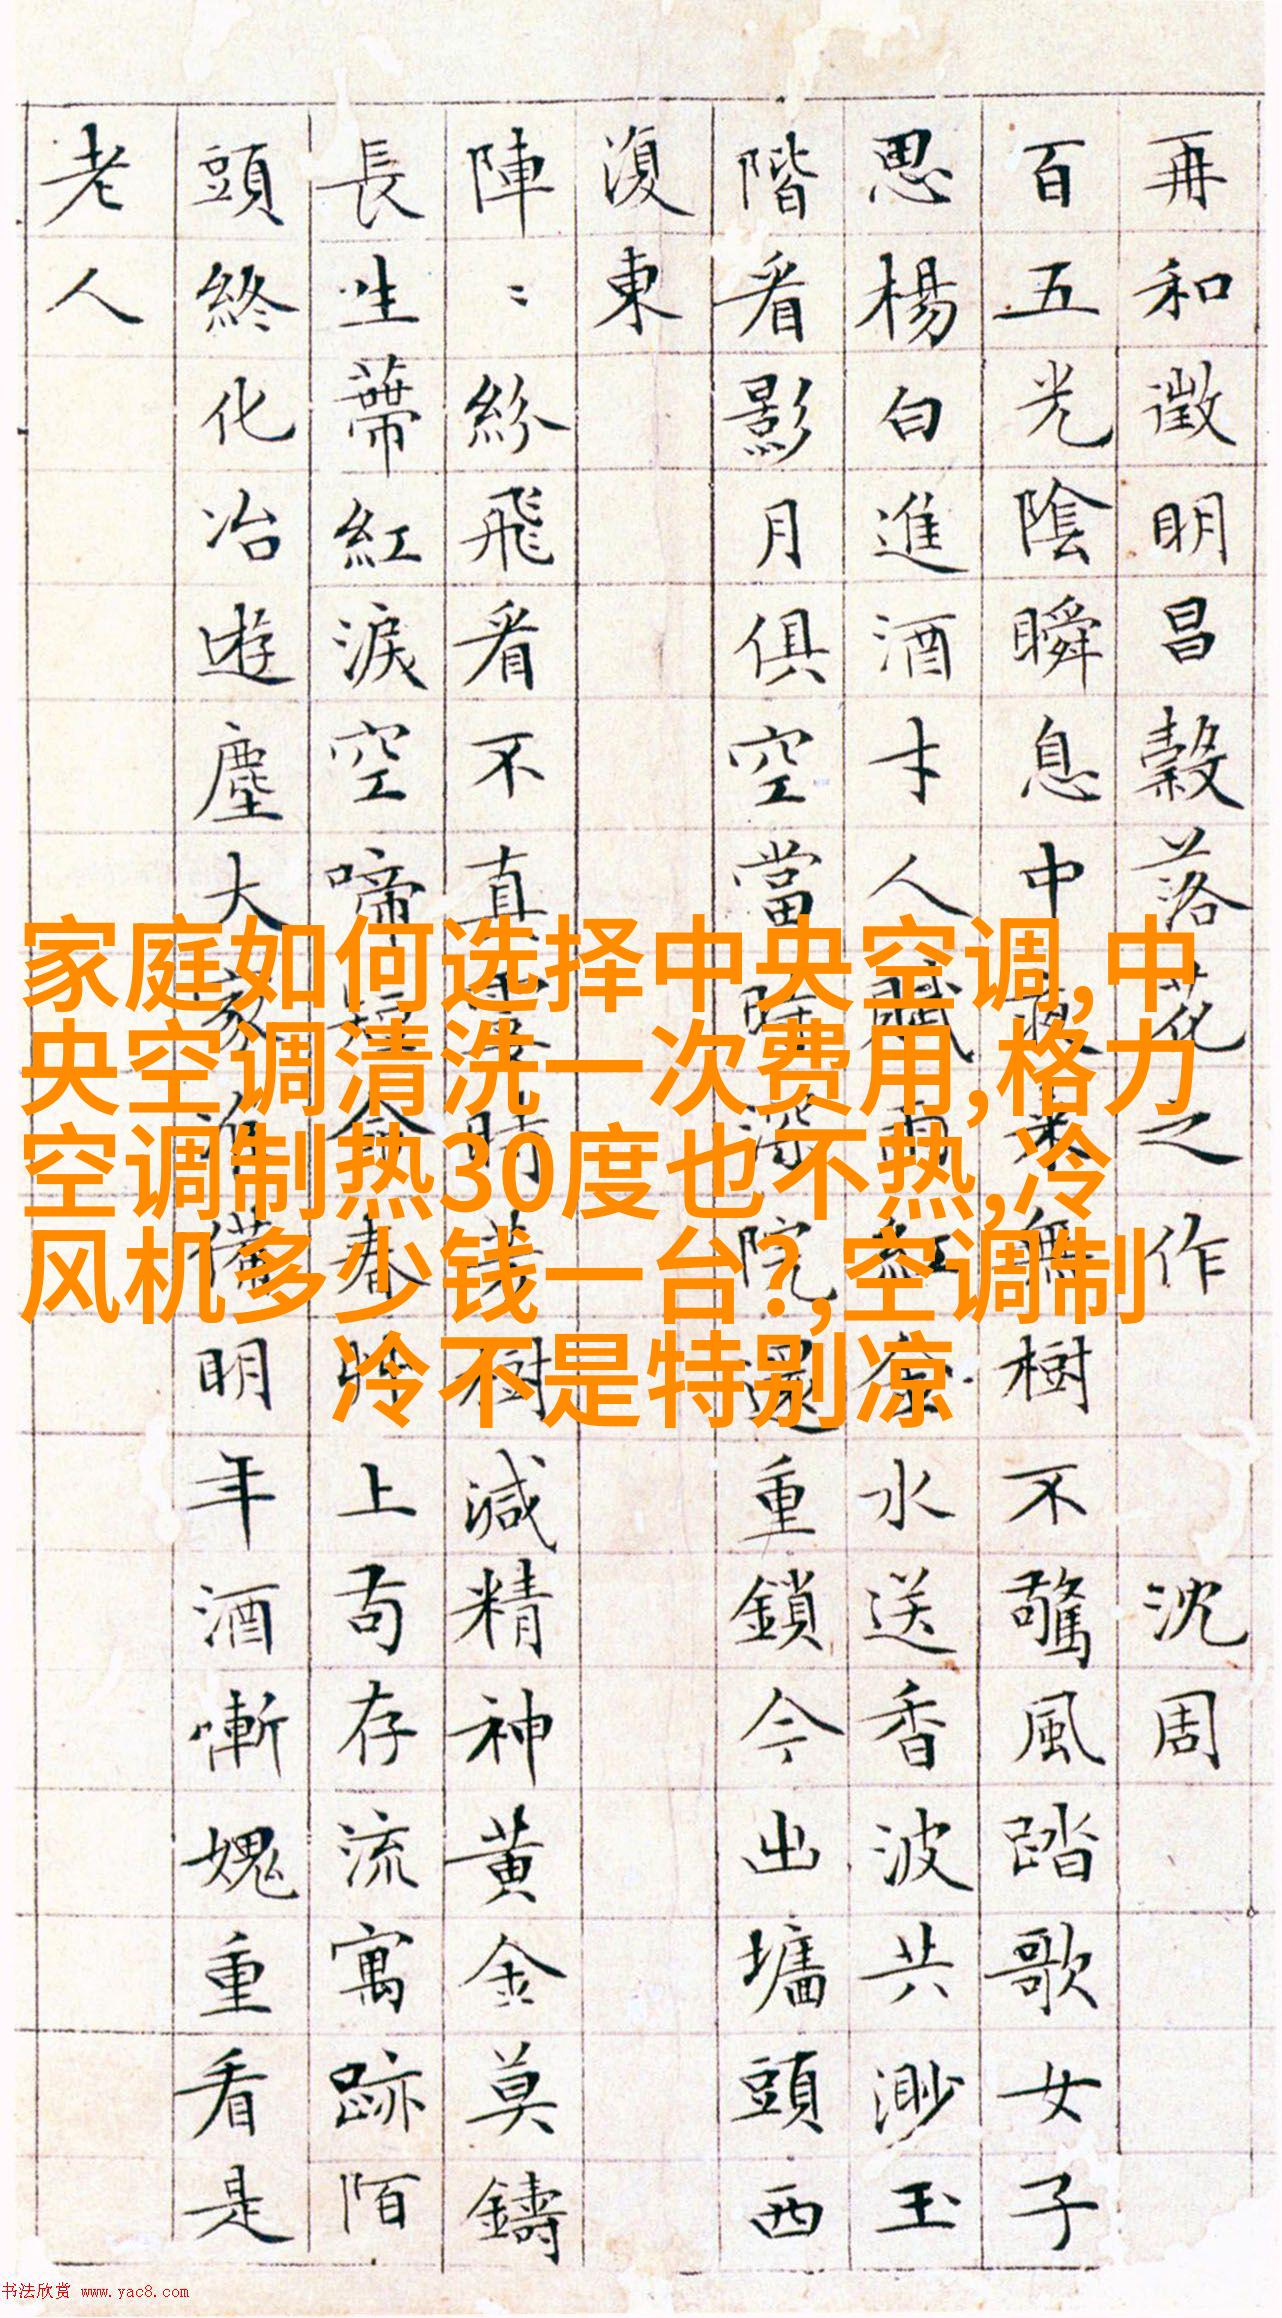 再和徵明昌穀落花之作 沈周
百五光陰瞬息中夜來無樹不驚風踏歌女子
思楊白進酒才人賦雨紅金水送香波共渺玉
階看影月俱空當時深院還重鎖今出墻頭西
復東
陣〻紛飛看不真霎時芳樹減精神黄金莫鑄
長生蒂紅淚空啼短命春艸上苟存流寓跡陌
頭終化冶遊塵大家准備明年酒慚愧重看是
老人
家庭如何选择中央空调,中
央空调清洗一次费用,格力
空调制热30度也不热,冷
风机多少钱一台?,空调制
冷不是特别凉
书法欣赏 www.yac8.com